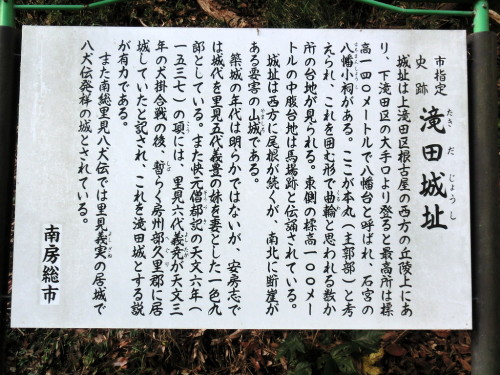 市指定
史跡
滝田城址
たき だ じょうし
城址は上滝田区根古屋の西方の丘陵上にあ
り、下滝田区の大手口より登ると最高所は標
高一四〇メートルで八幡台と呼ばれ、石宮の
八幡小祠がある。ここが本丸（主郭部）と考
えられ、これを囲む形で曲輪と思われる数か
所の台地が見られる。東側の標高一〇〇メー
トルの中腹台地は馬場跡と伝誦されている。
城址は西方に尾根が続くが、南北に断崖が
ある要害の山城である。
築城の年代は明らかではないが、安房志で
は城代を里見五代義豊の妹を妻とした一色九
郎としている。また快元僧都記の天文六年（
一五三七）の項には、里見六代義堯が天文三
年の犬掛合戦の後、暫らく房州部久里郡に居
城していたと記され、これを滝田城とする説
が有力である。
また南総里見八犬伝では里見義実の居城で
八犬伝発祥の城とされている。
南房総市